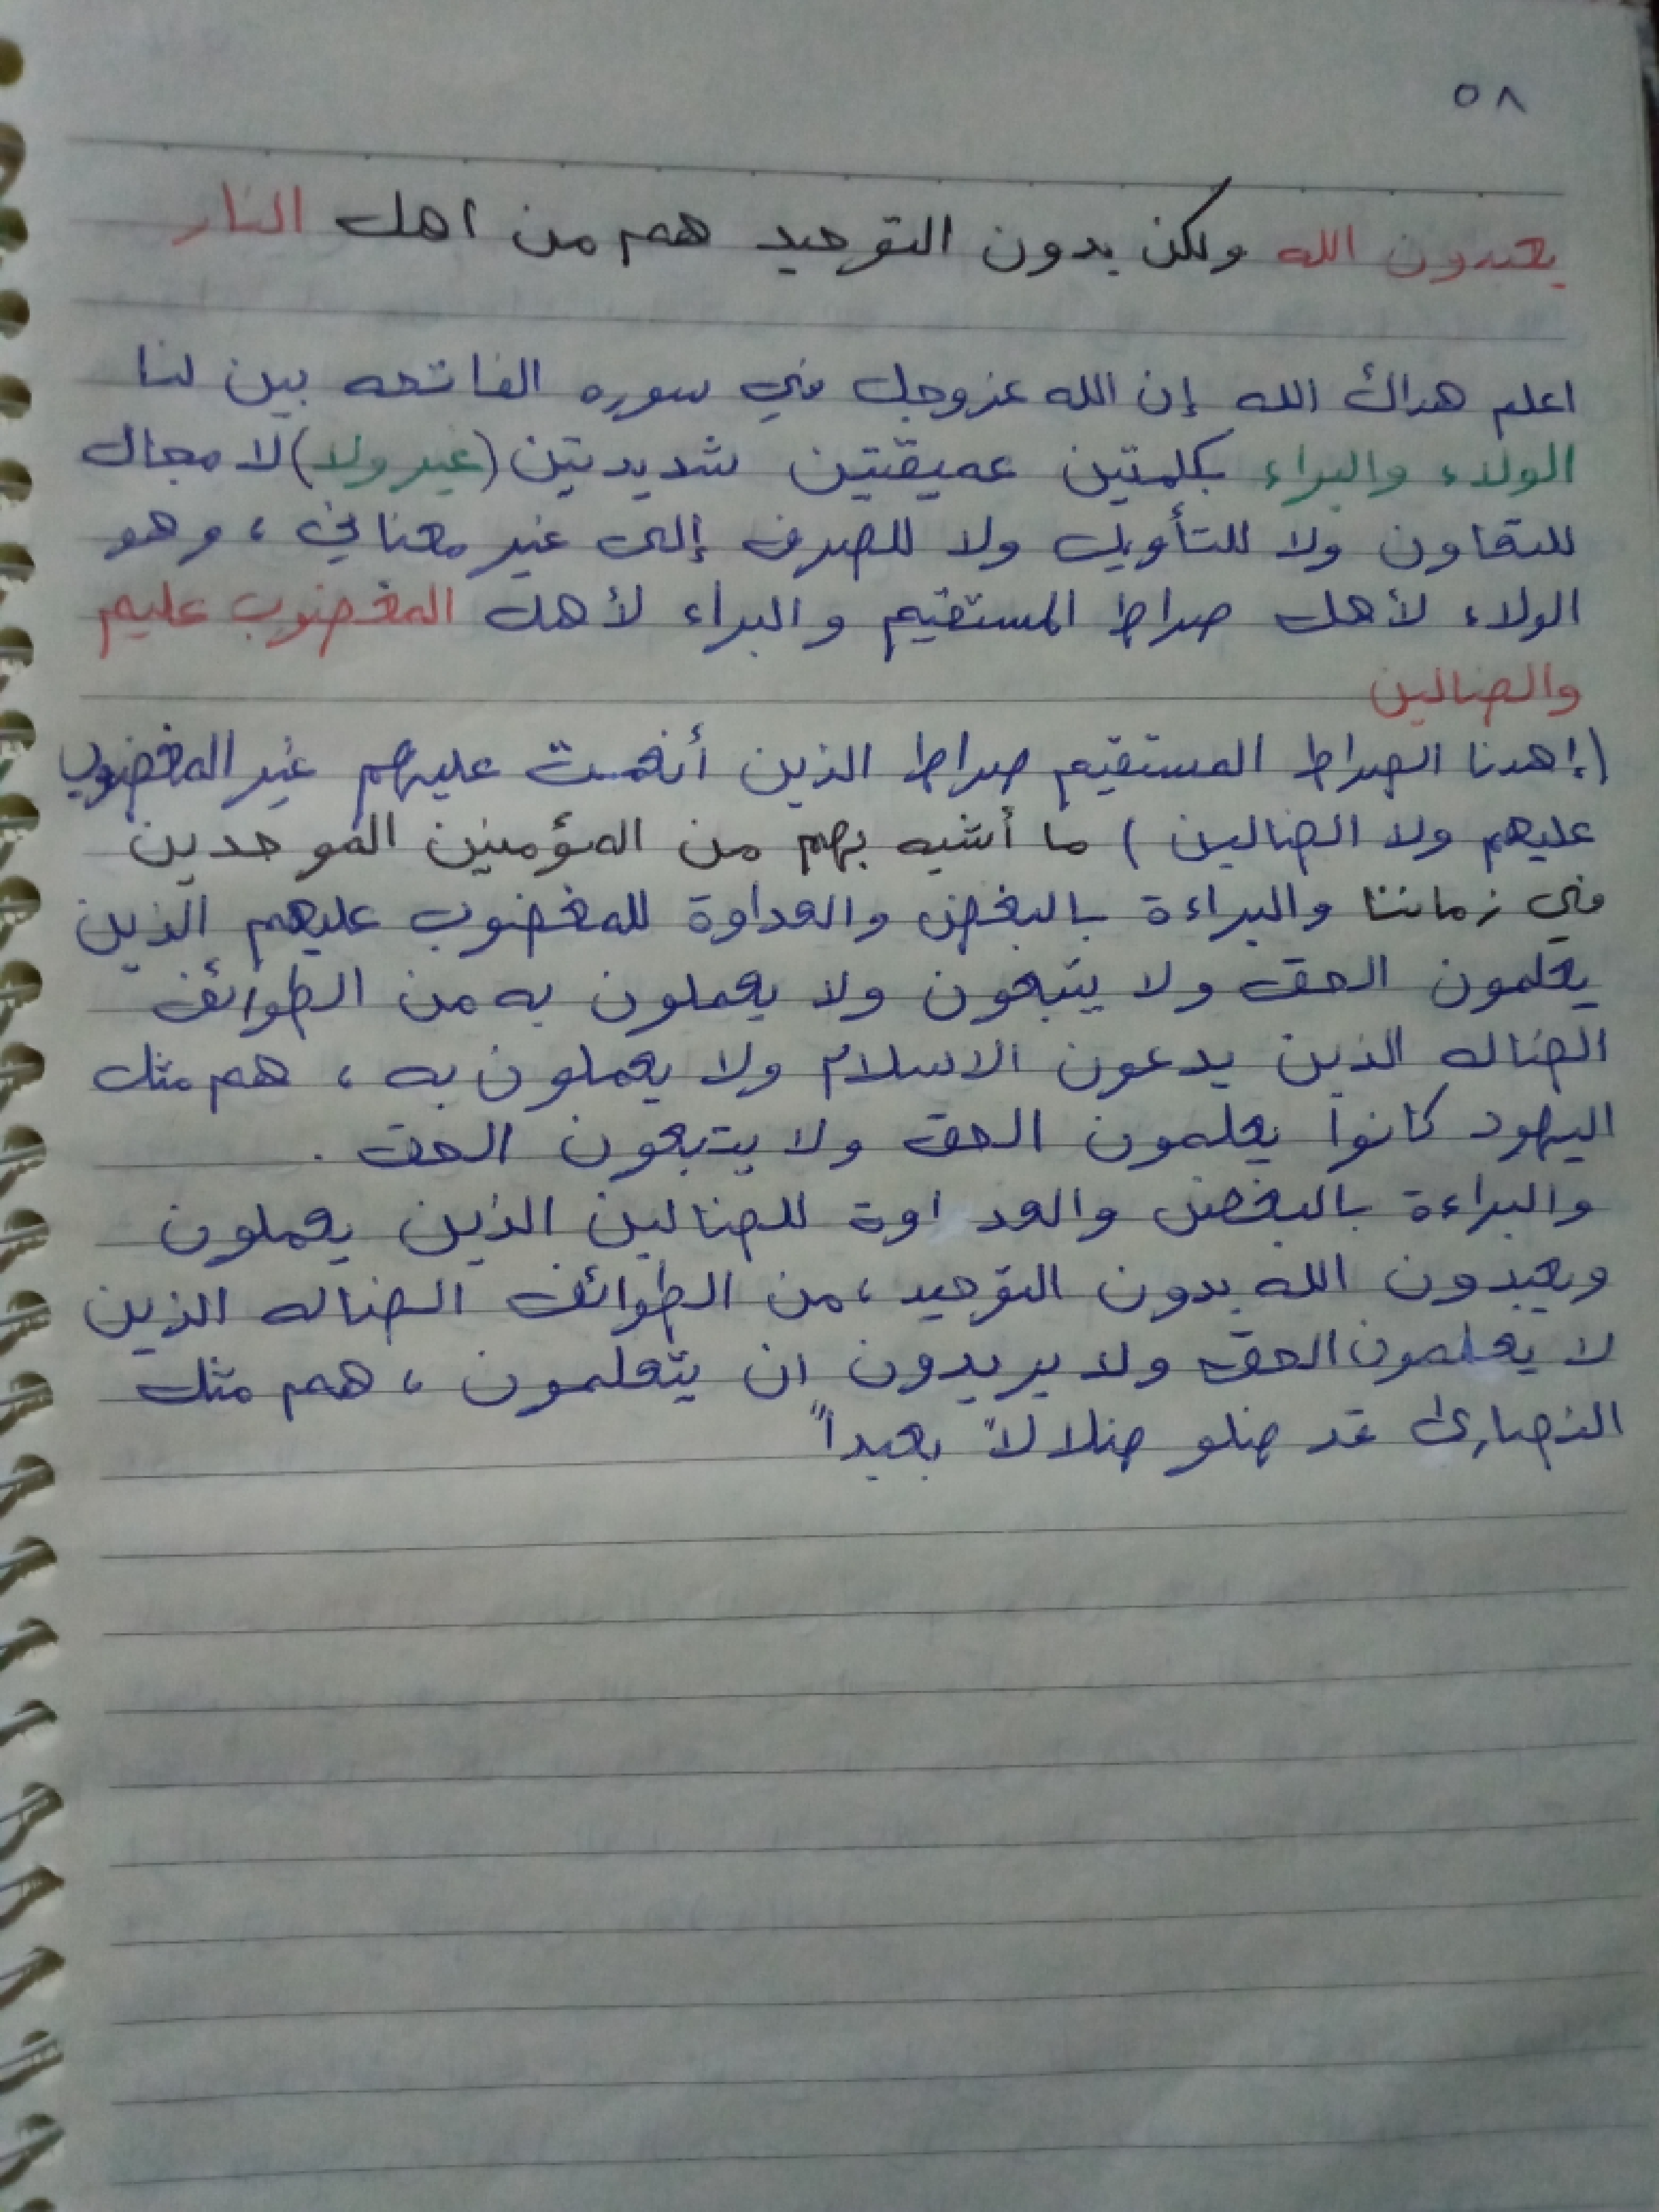 ٥٨
يعبدون الله ولكن بدون التوحيد هم من اهل النار
اعلم هداك الله إن الله عزوجل في سوره الفاتحه بين لنا
الولاء والبراء بكلمتين عميقتين شديدتين (غير ولا) لا مجال
للتقاون ولا للتأويل ولا للصرف إلى غير معناني ، وهو
الولاء لأهل صراط المستقيم والبراء لأهل المغضوب عليم
والضالين
(إهدنا الصراط المستقيم صراط الذين أنعمت عليهم غير المغضوب
عليهم ولا الضالين ) ما أشبه بهم من المؤمنين الموحدين
في زماننا والبراءة بالبغض والعداوة للمغضوب عليهم الذين
يعلمون الحق ولا يتبعون ولا يعملون به من الطوائف
الضاله الذين يدعون الاسلام ولا يعملون به ، هم مثل
اليهود كانوا يعلمون الحق ولا يتبعون الحق .
والبراءة بالبغض والعداوة للضالين الذين يعملون
ويعبدون الله بدون التوحيد ، من الطوائف الضاله الذين
لا يعلمون الحق ولا يريدون ان يتعلمون ، هم مثل
النصارى قد ضلو ضلالاً بعيداً